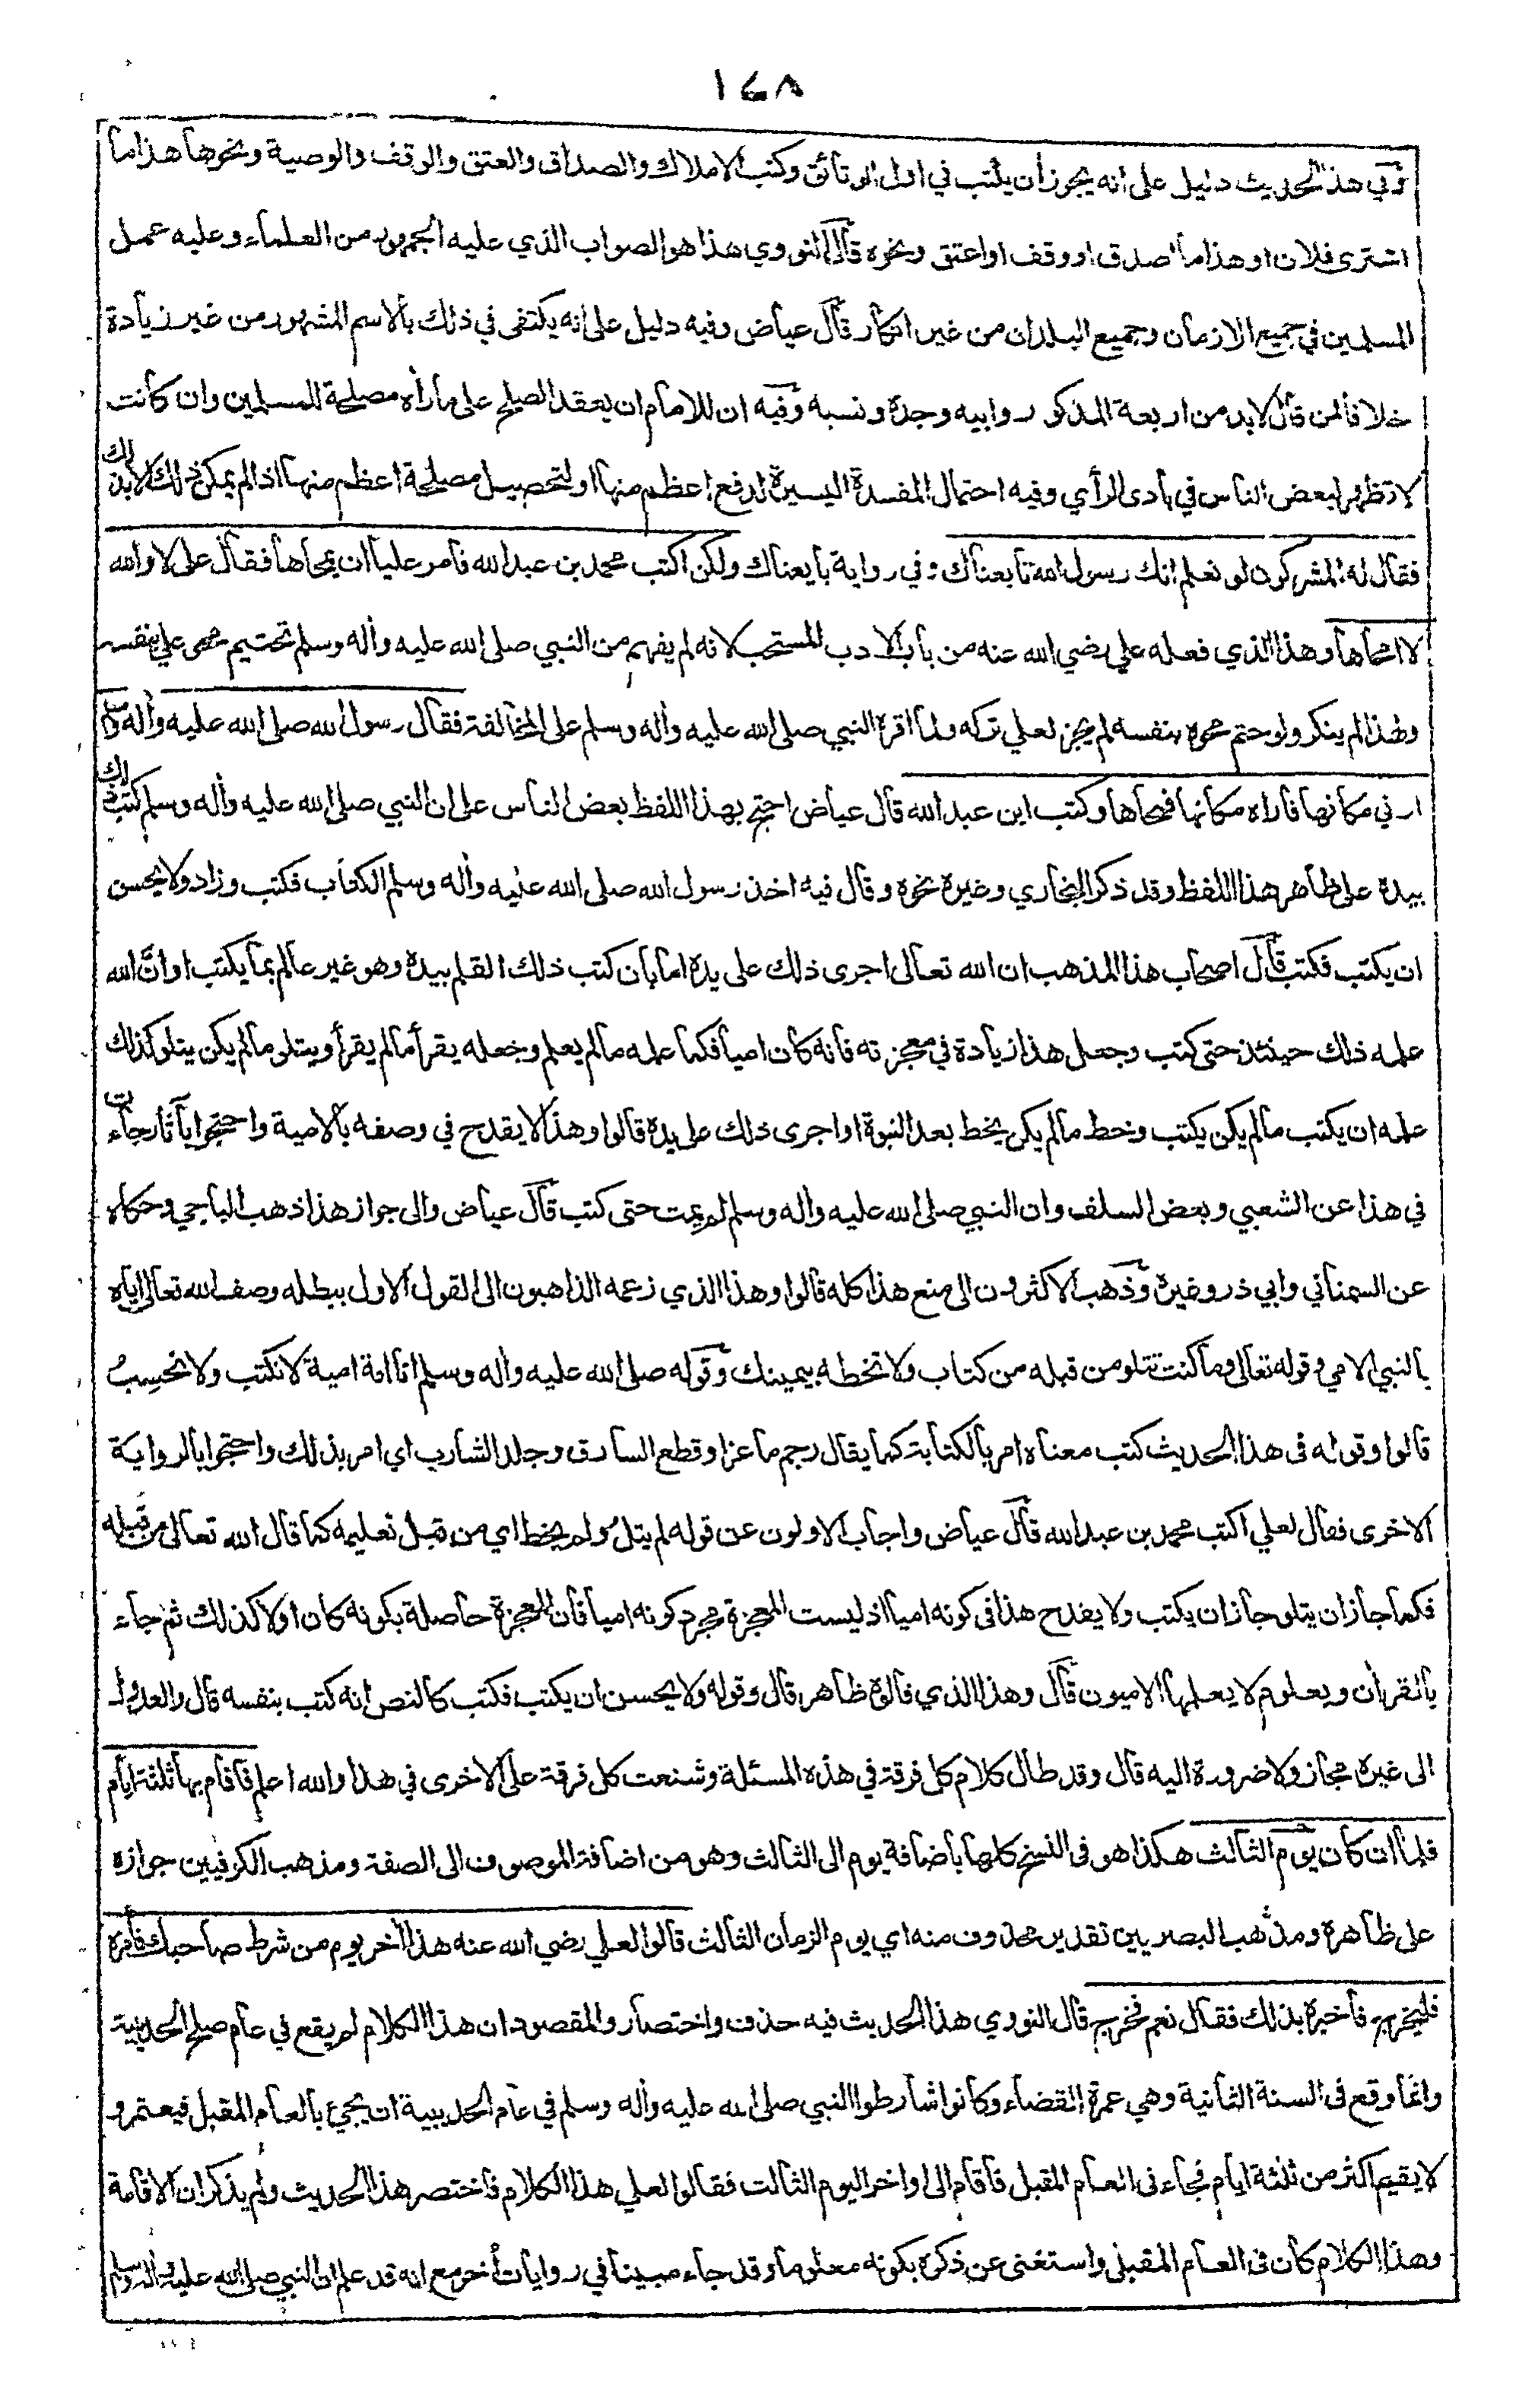 ١٤٨
وفي هذا الحديث دليل على انه يجوز أن يكتب في اول الوثائق وكتب الاملاك والصداق والعتق والوقف والوصية ونحوها هذا ما
اشترى فلان او هذا ما اصدق او وقف او اعتق ونحوه قال النووي هذا هو الصواب الذي عليه الجمهور من العلماء وعليه عمل
المسلمين في جميع الازمان وجميع البلدان من غير انكار قال عياض وفيه دليل على انه يكتفى في ذلك بالاسم المشهور من غير زيادة
خلافا لمن قال لابد من اربعة المذكور وابيه وجده ونسبه وفيه ان للامام ان يعقد الصلح على ما رأه مصلحة للمسلمين وان كانت
لا تظهر لبعض الناس في بادى الرأي وفيه احتمال المفسدة اليسيرة لدفع اعظم منها او لتحصيل مصلحة اعظم منها اذا لم يمكن ذلك الا بذلك
فقال له المشركون لو نعلم انك رسول الله تابعناك وفي رواية بايعناك ولكن اكتب محمد بن عبد الله فامر عليا ان يمحاها فقال علي لا والله
لا امحاها وهذا الذي فعله علي رضي الله عنه من باب الادب المستحب لانه لم يفهم من النبي صلى الله عليه وأله وسلم تحتيم محو علي بنفسه
ولهذا لم ينكر ولو حتم محوه بنفسه لم يجز لعلي تركه ولما اقره النبي صلى الله عليه وأله وسلم على المخالفة فقال رسول الله صلى الله عليه وأله وسلم
ارني مكانها فأراه مكانها فمحاها وكتب ابن عبد الله قال عياض احتج بهذا اللفظ بعض الناس على ان النبي صلى الله عليه وأله وسلم كتب ذلك
بيده على ظاهر هذا اللفظ وقد ذكر البخاري وغيره نحوه وقال فيه اخذ رسول الله صلى الله عليه وأله وسلم الكتاب فكتب وزاد ولا يحسن
ان يكتب فكتب قال اصحاب هذا المذهب ان الله تعالى اجرى ذلك على يده اما بان كتب ذلك القلم بيده وهو غير عالم بما يكتب او ان الله
علمه ذلك حينئذ حتى كتب وجعل هذا زيادة في معجزته فانه كان اميا فكما علمه ما لم يعلم وجعله يقرأ ما لم يقرأ ويتلو ما لم يكن يتلو كذلك
علمه ان يكتب ما لم يكن يكتب ونخط ما لم يكن يخط بعد النبوة او اجرى ذلك على يده قالوا وهذا لا يقدح في وصفه بالامية واحتجوا بآثار جاءت
في هذا عن الشعبي وبعض السلف وان النبي صلى الله عليه وأله وسلم لم يمت حتى كتب قال عياض والى جواز هذا ذهب الباجي وحكاه
عن السمناني وابي ذر وغيره وذهب الاكثرون الى منع هذا كله قالوا وهذا الذي زعمه الذاهبون الى القول الاول يبطله وصف الله تعالى اياه
بالنبي الامي وقوله تعالى وما كنت تتلو من قبله من كتاب ولا تخطه بيمينك وقوله صلى الله عليه وأله وسلم انا امة امية لا نكتب ولا نحسب
قالوا وقوله في هذا الحديث كتب معناه امر بالكتابة كما يقال رجم ماعزا وقطع السارق وجلد الشارب اي امر بذلك واحتجوا بالرواية
الاخرى فقال لعلي اكتب محمد بن عبد الله قال عياض واجاب الاولون عن قوله لم يتل ولم يخط اي من قبل تعليمه كما قال الله تعالى من قبله
فكما جاز ان يتلو جاز ان يكتب ولا يقدح هذا في كونه اميا اذ ليست المعجزة مجرد كونه اميا فان المعجزة حاصلة بكونه كان اولا كذلك ثم جاء
بالقرأن وبعلوم لا يعلمها الاميون قال وهذا الذي قالوه ظاهر قال وقوله ولا يحسن ان يكتب فكتب كالنص انه كتب بنفسه قال والعدول
الى غيره مجاز ولا ضرورة اليه قال وقد طال كلام كل فرقة في هذه المسئلة وشنعت كل فرقة على الاخرى في هذا والله اعلم فاقام بها ثلثة ايام
فلما ان كان يوم الثالث هكذا هو في النسخ كلها باضافة يوم الى الثالث وهو من اضافة الموصوف الى الصفة ومذهب الكوفيين جوازه
على ظاهره ومذهب البصريين تقدير محذوف منه اي يوم الزمان الثالث قالوا لعلي رضي الله عنه هذا أخر يوم من شرط صاحبك فأمره
فليخرج فأخبره بذلك فقال نعم فخرج قال النووي هذا الحديث فيه حذف واختصار والمقصود ان هذا الكلام لم يقع في عام صلح الحديبية
وانما وقع في السنة الثانية وهي عمرة القضاء وكانوا شارطوا النبي صلى الله عليه وأله وسلم في عام الحديبية ان يجيء بالعام المقبل فيعتمر و
لا يقيم اكثر من ثلثة ايام فجاء في العام المقبل فاقام الى اواخر اليوم الثالث فقالوا لعلي هذا الكلام فاختصر هذا الحديث ولم يذكر ان الاقامة
وهذا الكلام كان في العام المقبل واستغنى عن ذكره بكونه معلوما وقد جاء مبينا في روايات أخر مع انه قد علم ان النبي صلى الله عليه وأله وسلم